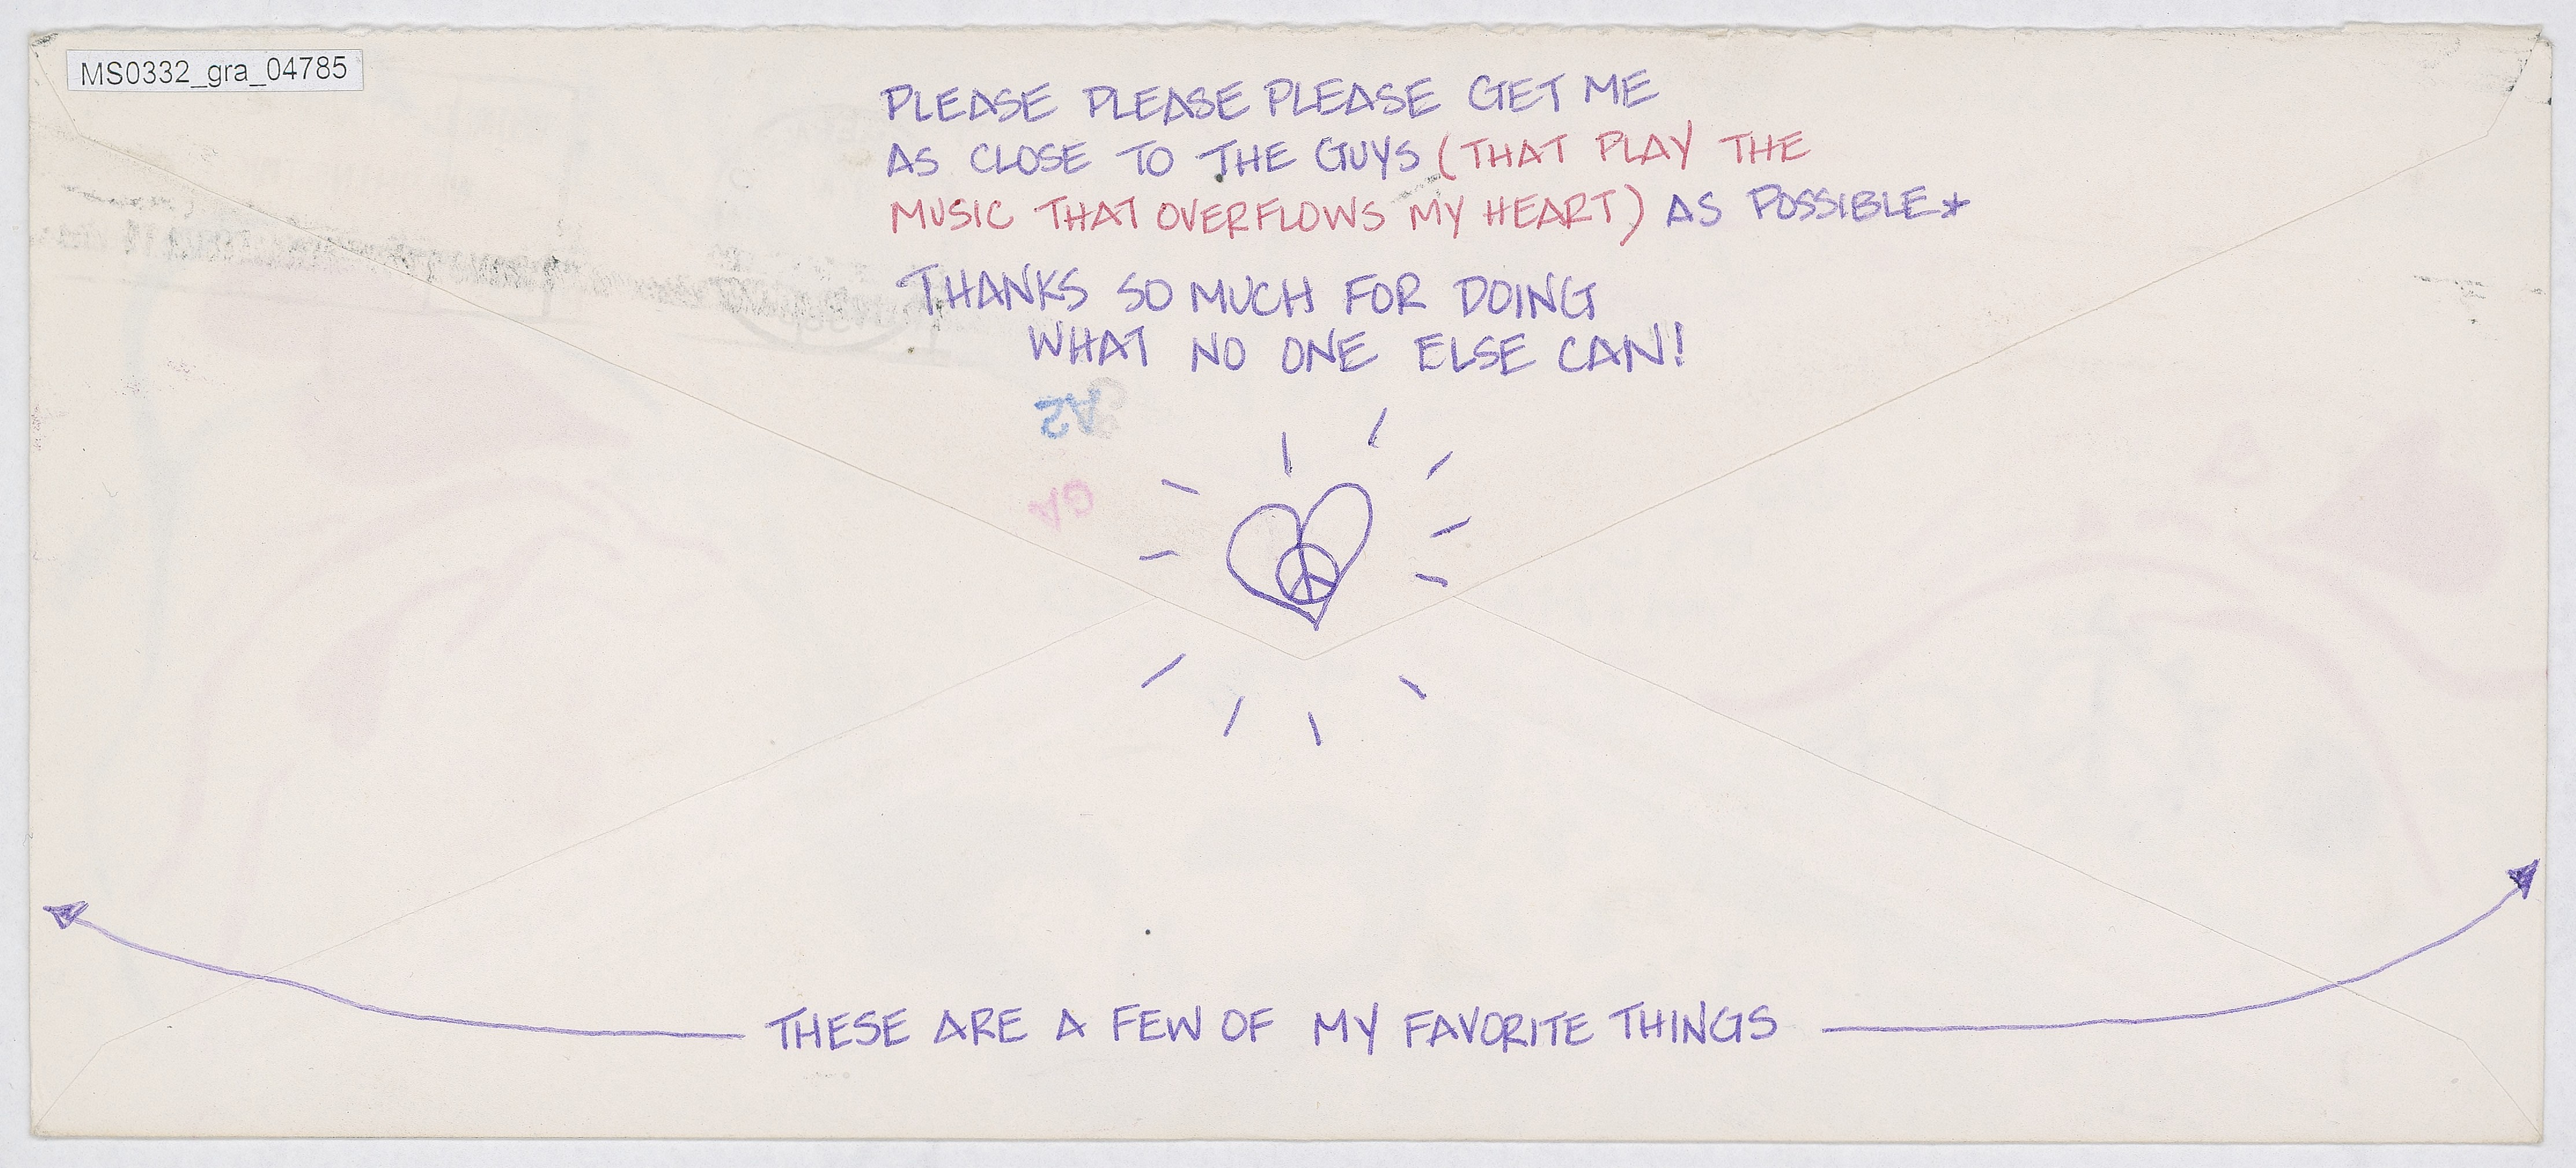 MS0332_gra_04785
PLEASE PLEASE PLEASE GET ME
AS CLOSE TO THE GUYS (THAT PLAY THE
MUSIC THAT OVERFLOWS MY HEART) AS POSSIBLE*
THANKS SO MUCH FOR DOING
WHAT NO ONE ELSE CAN!
THESE ARE A FEW OF MY FAVORITE THINGS